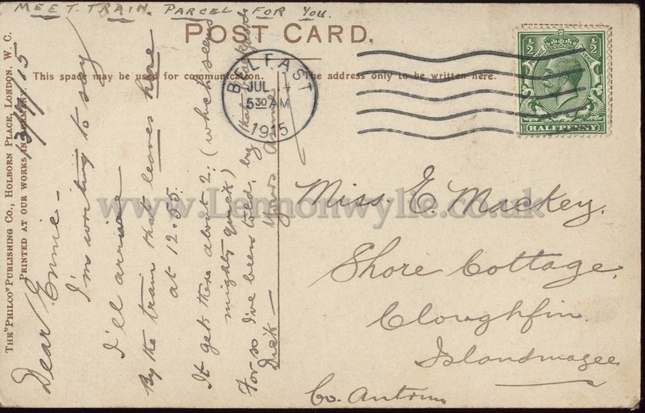 MEET TRAIN. PARCEL FOR YOU.
POST CARD.
This space may be used for communication.
The address only to be written here.
THE "PHILCO" PUBLISHING CO., HOLBORN PLACE, LONDON, W. C.
PRINTED AT OUR WORKS IN
BELFAST
JUL 14
5 30 AM
1915
½ ½
HALFPENNY
13/7/15
Dear Ernie –
I'm writing to say
I'll arrive
By the train that leaves here
at 12.55.
It gets there about 2. (which seems
mighty quick)
For so I've been told, by
Dick –
Yours
Miss. E. Mackey.
Shore Cottage.
Cloughfin.
Islandmagee
Co. Antrim
www.Lennonwylie.co.uk